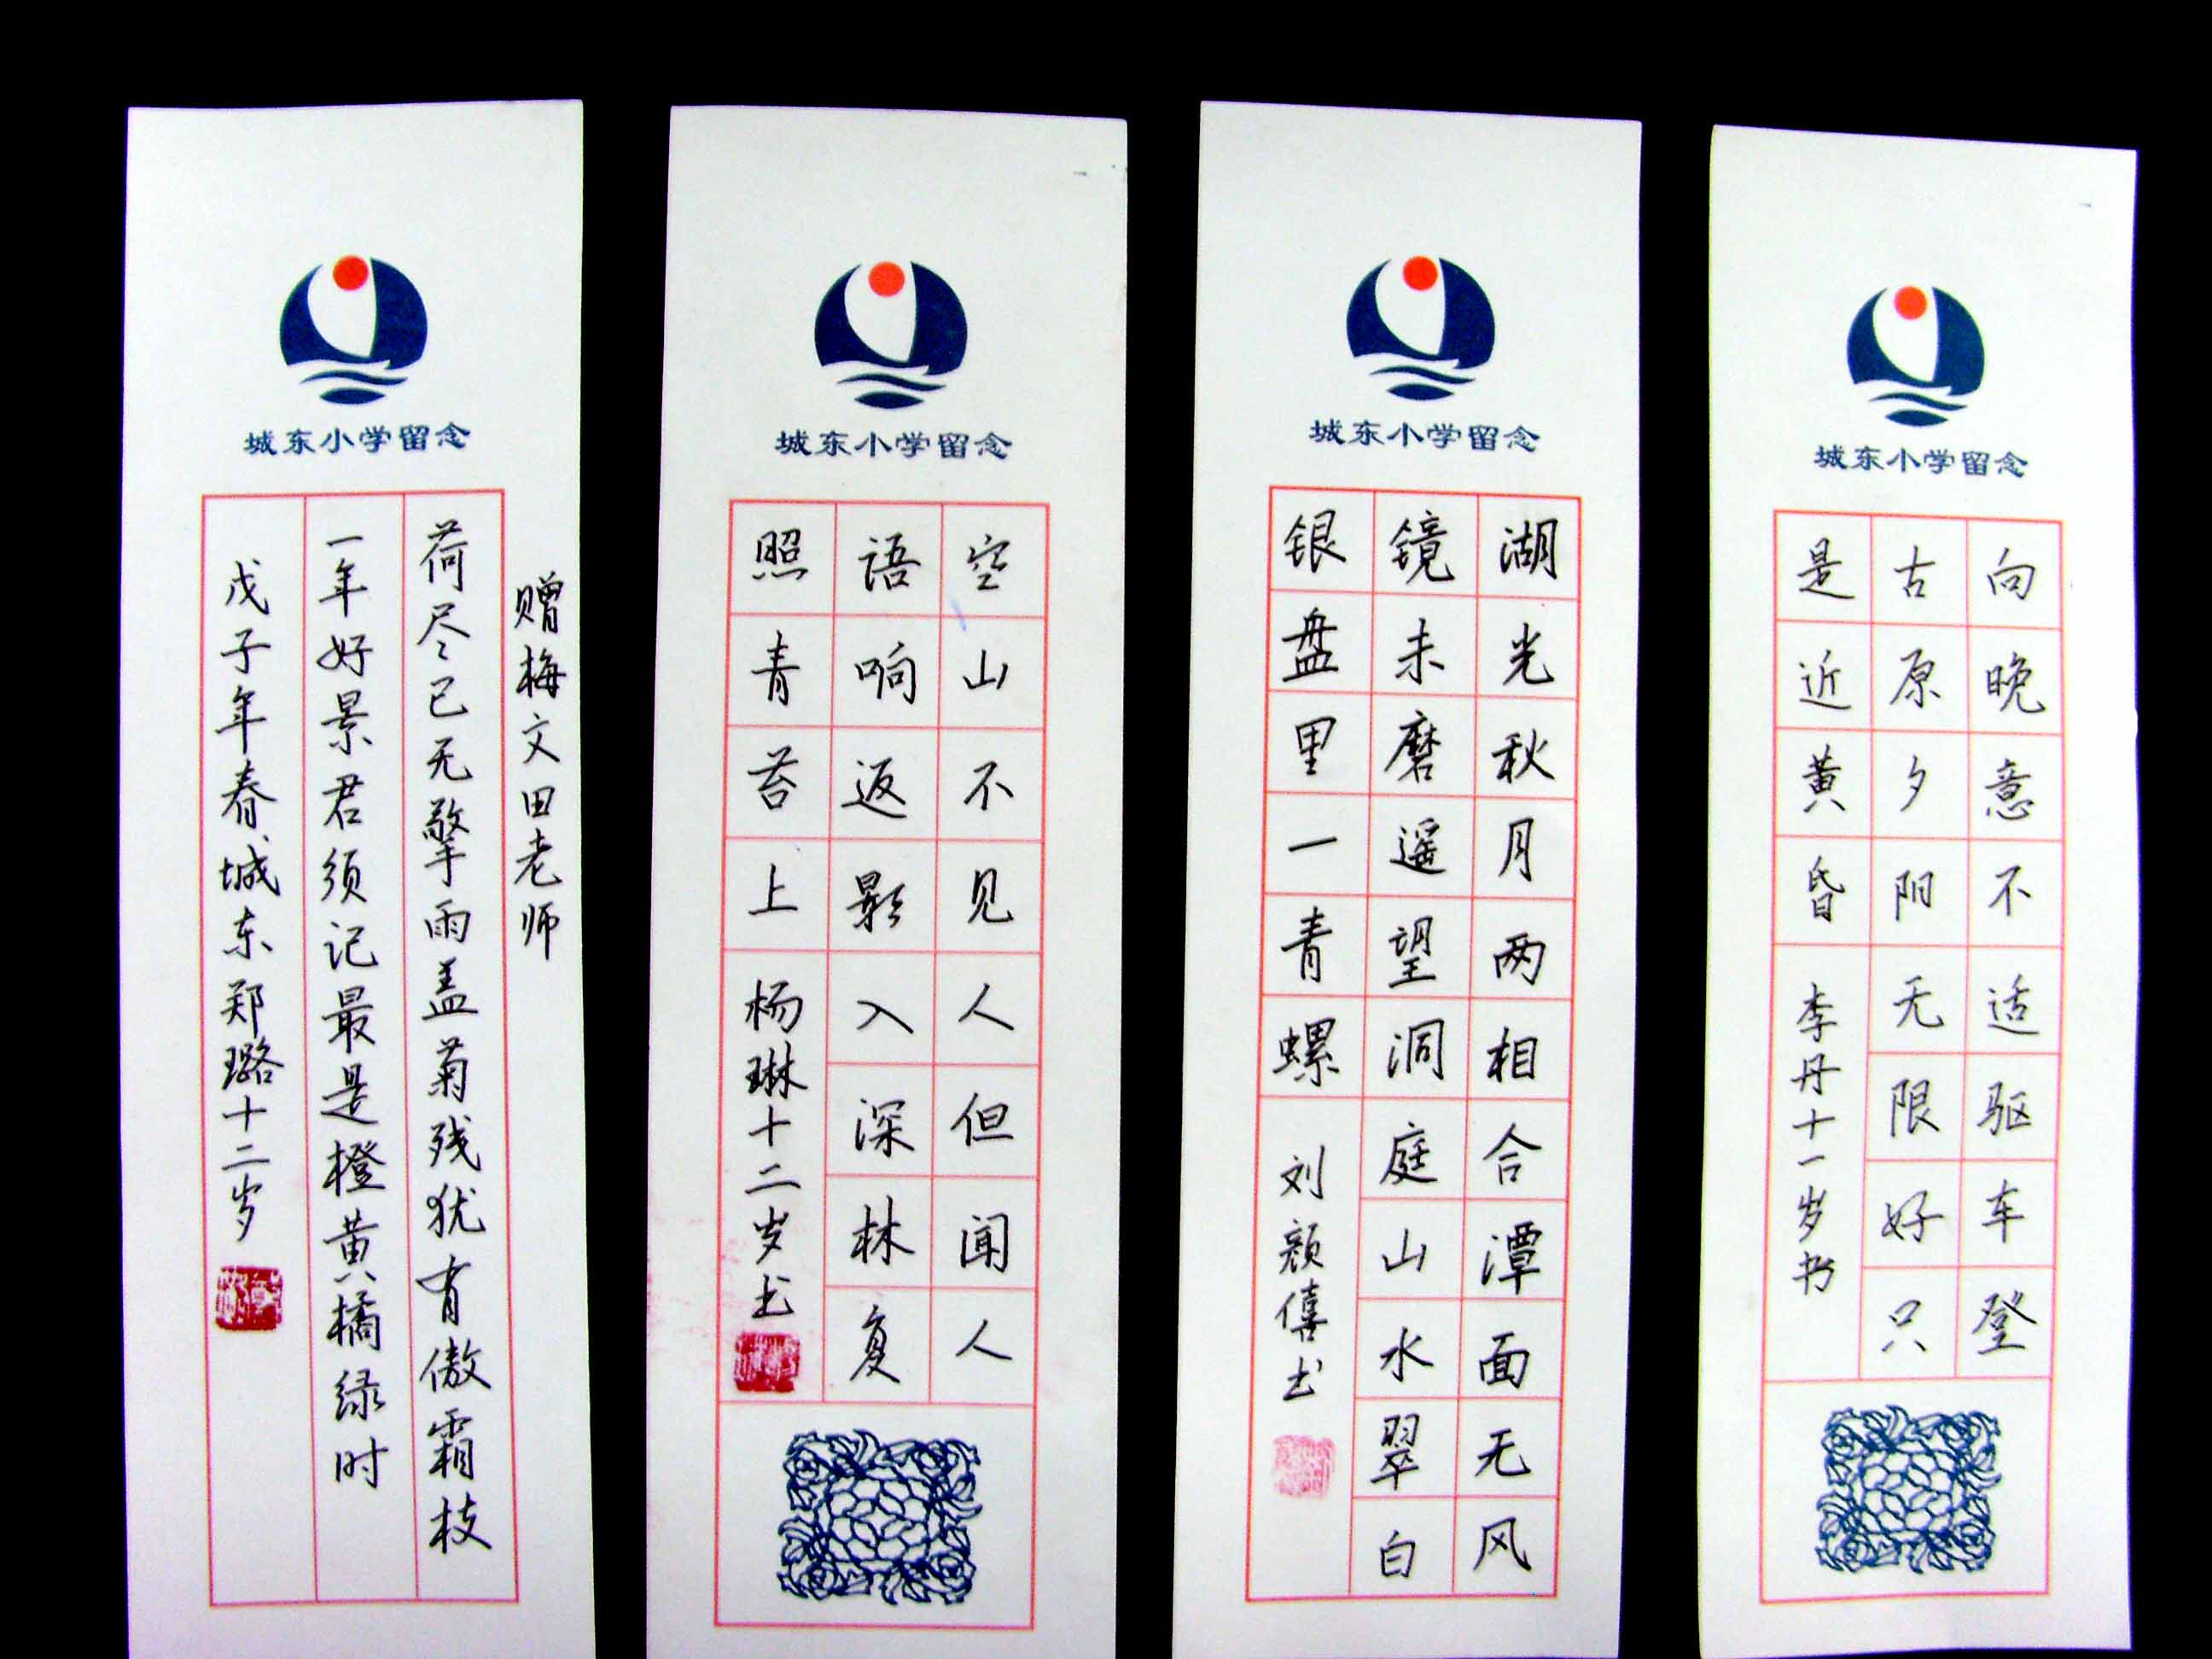 城东小学留念
赠梅文田老师
荷尽已无擎雨盖菊残犹有傲霜枝
一年好景君须记最是橙黄橘绿时
戊子年春城东郑璐十二岁
城东小学留念
空山不见人但闻人
语响返影入深林复
照青苔上 杨琳十二岁书
城东小学留念
湖光秋月两相合潭面无风
镜未磨遥望洞庭山水翠白
银盘里一青螺 刘颜僖书
城东小学留念
向晚意不适驱车登
古原夕阳无限好只
是近黄昏 李丹十一岁书